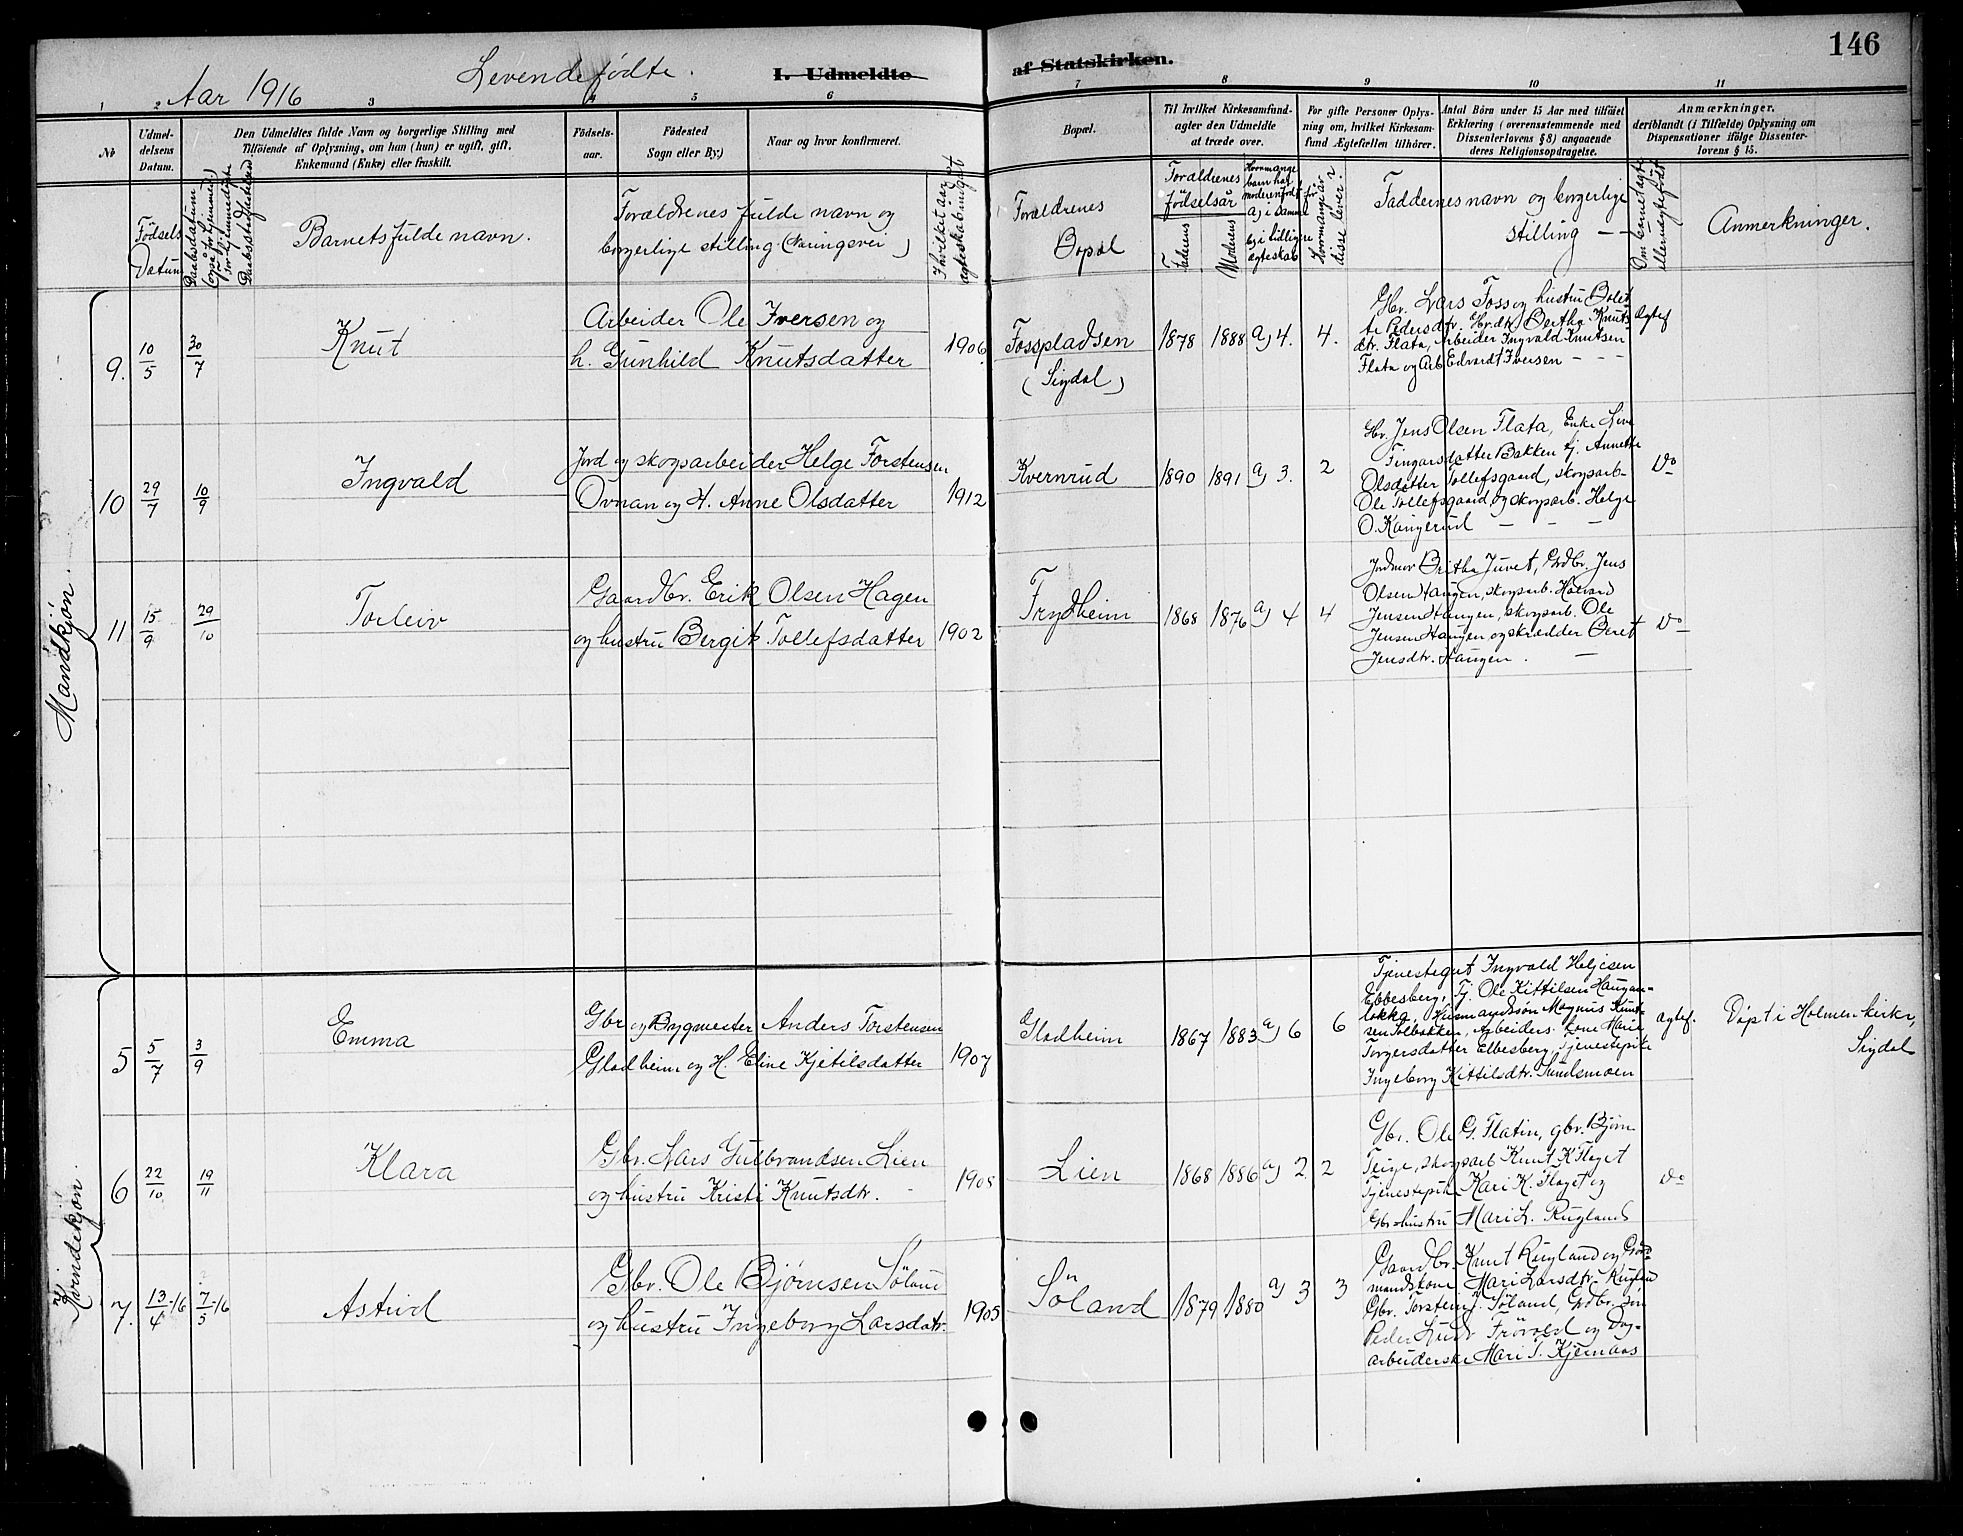 146
Aar 1916
Levendefødte.
I. Udmeldte
af Statskirken.
1 2 3 4 5 6 7 8 9 10 11
No
Udmel-
delsens
Datum.
Den Udmeldtes fulde Navn og borgerlige Stilling med
Tilføiende af Oplysning, om han (hun) er ugift, gift,
Enkemand (Enke) eller fraskilt.
Fødsels-
aar.
Fødested
Sogn eller By.)
Naar og hvor konfirmeret.
Bopæl.
Til hvilket Kirkesamfund-
agter den Udmeldte
at træde over.
For gifte Personer Oplys-
ning om, hvilket Kirkesam-
fund Ægtefællen tilhører.
Antal Børn under 15 Aar med tilføiet
Erklæring (overensstemmende med
Dissenterlovens § 8) angaaende
deres Religionsopdragelse.
Anmærkninger.
deriblandt (i Tilfælde) Oplysning om
Dispensationer ifølge Dissenter-
lovens § 15.
Fødsels
Datum
Daabsdatum
(også for hjemmed.)
Barnets fulde navn.
Forældrenes fulde navn og
borgerlige stilling (Næringsvei)
I hvilket aar
ægteskab indgaat
Forældrenes
Bopæl
Forældrenes
fødselsår
Faderens
Moderens
Hvormange
barn har
moderen født før
a) i samme
b) i tidligere
ægteskab
Hvormange av
disse lever?
Faddernes navn og borgerlige
stilling — —
Om barnet ægte
eller uægte født
Anmerkninger.
Mandkjøn.
9. 10/5 30/7 Knut
Arbeider Ole Iversen og
h. Gunhild Knutsdatter
1906
Fosspladsen
(Sigdal)
1878 1888 a) 4. 4.
Gbr. Lars Foss og hustru Bolet-
te Pedersdtr. Gbrdtr. Bertha Knuts-
dtr. Flata, Arbeider Ingvald Knutsen
Flata og Arb Edvardt Iversen — — —
Ægtef
10 29/7 10/9 Ingvald
Jord og skogsarbeider Helge Torstensen
Ovnan og H. Anne Olsdatter
1912
Kvernrud
1890 1891 a) 3. 2
Gbr. Jens Olsen Flata, Enke Live
Fingarsdatter Bakken tj. Annette
Olsdatter Tollefsgaard, skogsarb-
Ole Tollefsgaard og skogsarb. Helge
O. Kangerud — — —
Do
11 15/9 29/10 Torleiv
Gaardbr. Erik Olsen Hagen
og hustru Bergit Tollefsdatter
1902
Frydheim
1868 1876 a) 4 4
Jordmor Britha Juvet, Grdbr. Jens
Olsen Haugen, skogsarb. Halvard
Jensen Haugen, skogsarb. Ole
Jensen Haugen og skrædder Beret
Jensdtr. Haugen. —
Do
Kvindekjøn.
5 5/7 3/9 Emma
Gbr og Bygmester Anders Torstensen
Gladheim og H. Eline Kjetilsdatter
1907
Gladheim
1867 1883 a) 6 6
Tjenestegut Ingvald Helgesen
Ebbesberg, Tj. Ole Kittilsen Haugan-
løkka, Husmandssøn Magnus Knut-
sen Solbakken, Arbeiders. kone Marie
Torgersdatter Ebbesberg, Tjenestepike
Ingeborg Kittilsdtr. Sundsmoen
ægtef.
Døpt i Holmen kirke,
Sigdal
6 22/10 19/11 Klara
Gbr. Lars Gulbrandsen Lien
og hustru Kristi Knutsdtr.
1905
Lien
1868 1886 a) 2. 2
Gbr. Ole G. Flatin, gbr. Bjørn
Teige, skogsarb Knut K Flaget
Tjenestepike Kari K. Flaget og
Gbr. hustru Mari L. Rugland
do
7. 13/4-16 7/5-16 Astrid
Gbr. Ole Bjørnsen Söland
og hustru Ingeborg Larsdatr.
1905
Söland
1879 1880 a) 3 3
Gaardbr. Knut Rugland og Gård-
mandskone Mari Larsdtr. Rugland
Gbr. Torstein J. Söland, Grdbr. søn
Peder Lude Frövold og Dag-
arbeiderske Mari T. Kjernaas